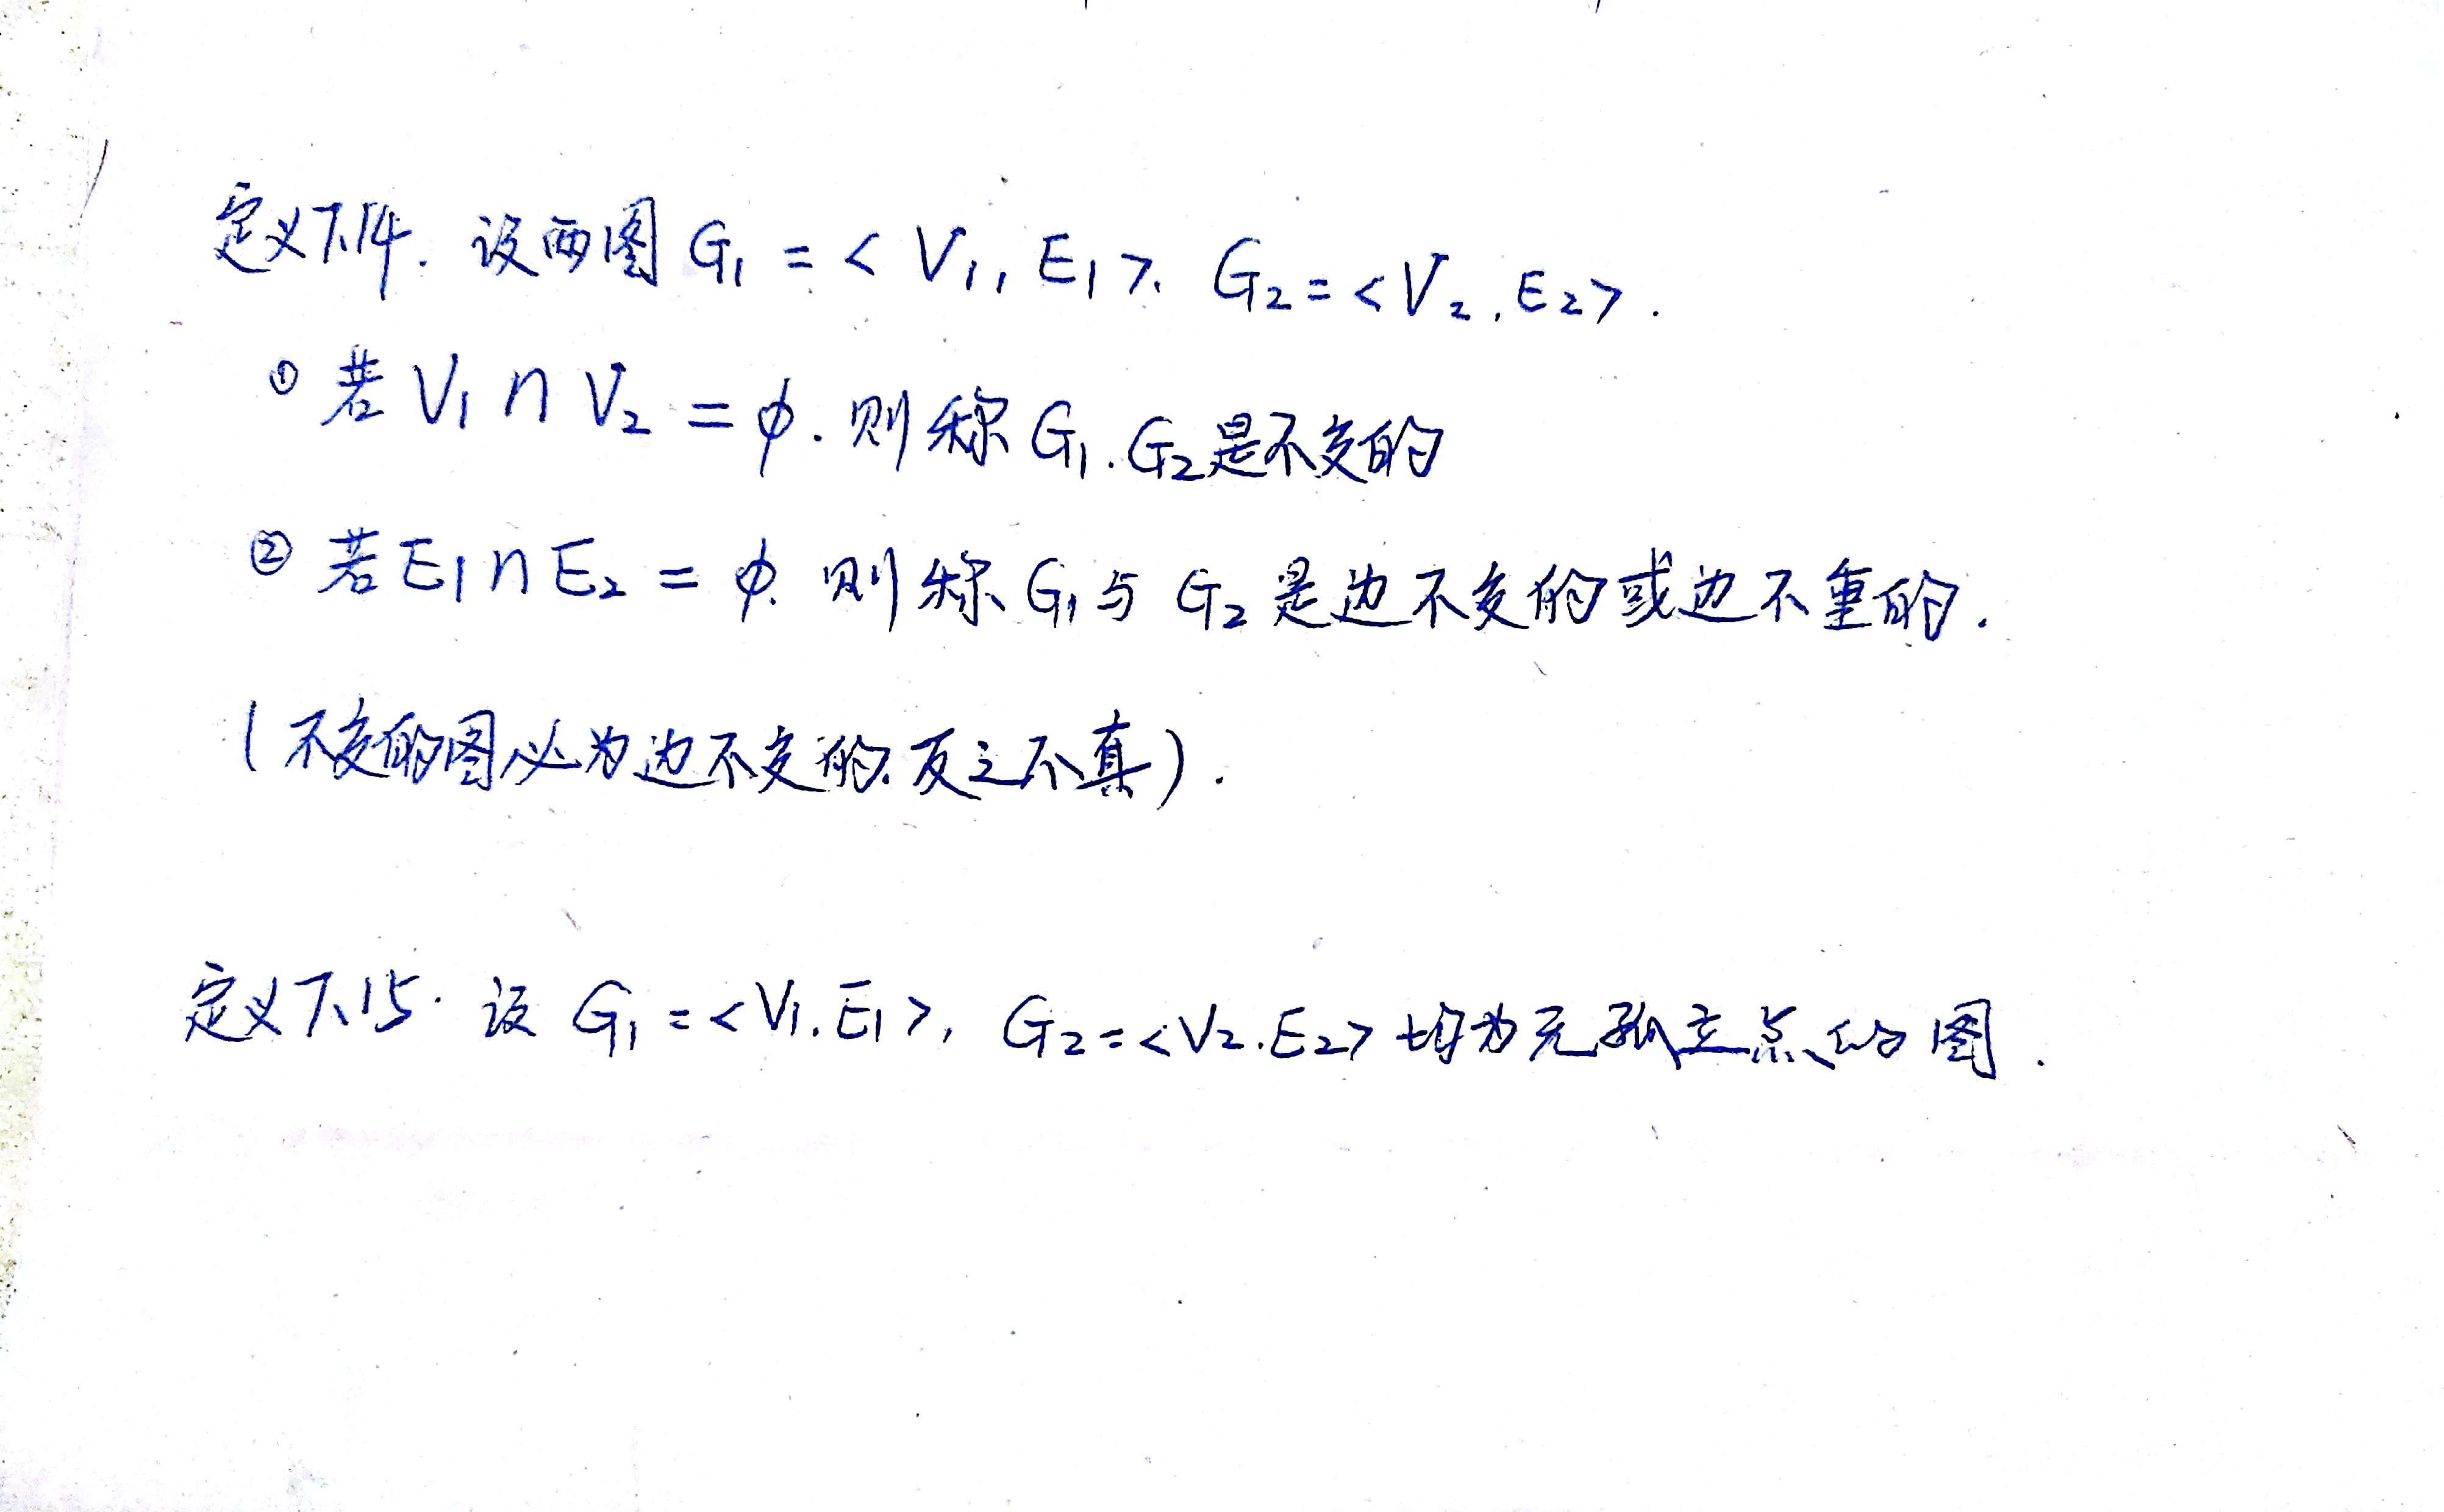 定义7.14. 设两图 G₁ = < V₁, E₁ >. G₂ = < V₂, E₂ >.
① 若 V₁ ∩ V₂ = φ. 则称 G₁. G₂ 是不交的
② 若 E₁ ∩ E₂ = φ. 则称 G₁ 与 G₂ 是边不交的或边不重的.
( 不交的图必为边不交的. 反之不真 ).
定义7.15. 设 G₁ = < V₁. E₁ >, G₂ = < V₂. E₂ > 均为无孤立点的图.